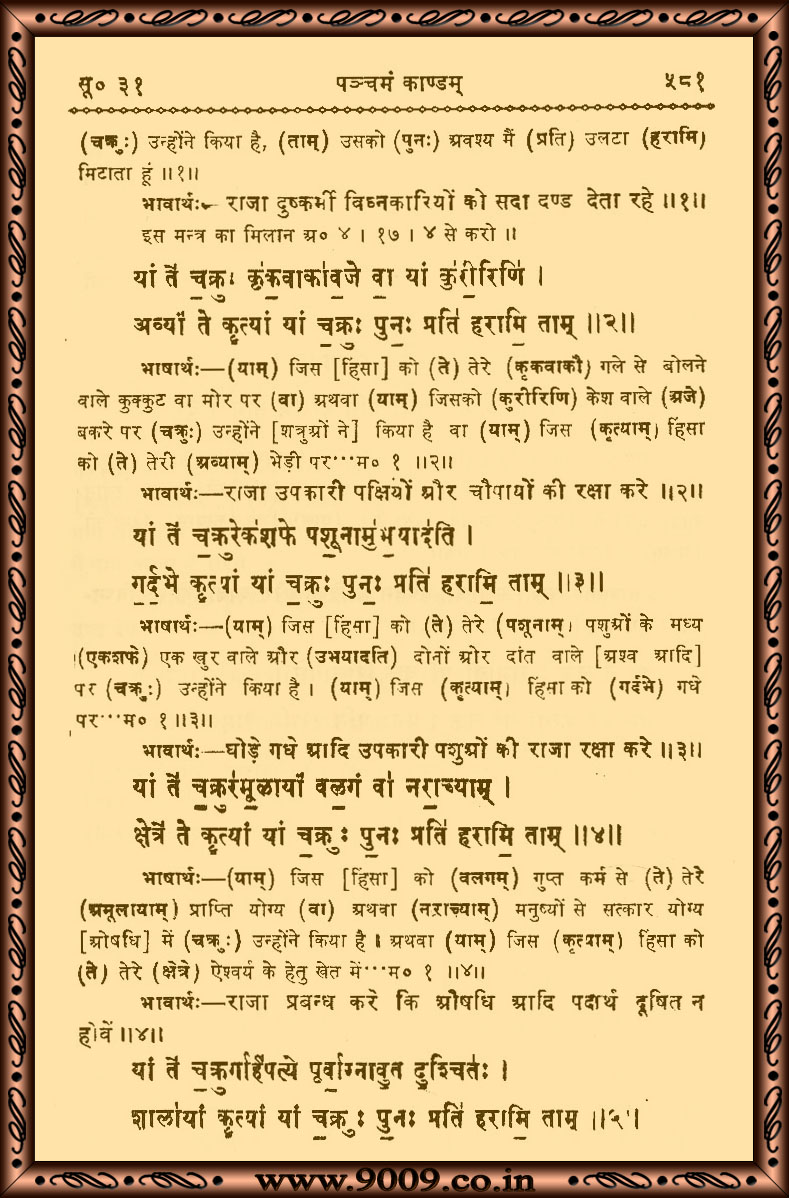 सू० ३१ पञ्चमं काण्डम् ५८१
(चक्रुः) उन्होंने किया है, (ताम्) उसको (पुनः) अवश्य मैं (प्रति) उलटा (हरामि)
मिटाता हूं ॥१॥
भावार्थः— राजा दुष्कर्मी विघ्नकारियों को सदा दण्ड देता रहे ॥१॥
इस मन्त्र का मिलान अ० ४ । १७ । ४ से करो ॥
यां ते॑ च॒क्रुः कृ॑क॒वाका॑व॒जे वा॒ यां कु॑री॒रिणि॑ ।
अव्यां॑ ते कृ॒त्यां यां च॒क्रुः पुनः॒ प्रति॑ हरामि॒ ताम् ॥२॥
भाषार्थः—(याम्) जिस [हिंसा] को (ते) तेरे (कृकवाकौ) गले से बोलने
वाले कुक्कुट वा मोर पर (वा) अथवा (याम्) जिसको (कुरीरिणि) केश वाले (अजे)
बकरे पर (चक्रुः) उन्होंने [शत्रुओं ने] किया है वा (याम्) जिस (कृत्याम्) हिंसा
को (ते) तेरी (अव्याम्) भेड़ी पर···म० १ ॥२॥
भावार्थः—राजा उपकारी पक्षियों और चौपायों की रक्षा करे ॥२॥
यां ते॑ च॒क्रुरेक॑शफे पशू॒नामु॑भ॒याद॑ति ।
ग॒र्द॒भे कृ॒त्यां यां च॒क्रुः पुनः॒ प्रति॑ हरामि॒ ताम् ॥३॥
भाषार्थः—(याम्) जिस [हिंसा] को (ते) तेरे (पशूनाम्) पशुओं के मध्य
(एकशफे) एक खुर वाले और (उभयादति) दोनों ओर दांत वाले [अश्व आदि]
पर (चक्रुः) उन्होंने किया है । (याम्) जिस (कृत्याम्) हिंसा को (गर्दभे) गधे
पर···म० १ ॥३॥
भावार्थः—घोड़े गधे आदि उपकारी पशुओं की राजा रक्षा करे ॥३॥
यां ते॑ च॒क्रुर॑मू॒लायां॑ वल॒गं वा॑ नरा॒च्याम् ।
क्षेत्रे॑ ते कृ॒त्यां यां च॒क्रुः पुनः॒ प्रति॑ हरामि॒ ताम् ॥४॥
भाषार्थः—(याम्) जिस [हिंसा] को (वलगम्) गुप्त कर्म से (ते) तेरे
(अमूलायाम्) प्राप्ति योग्य (वा) अथवा (नराच्याम्) मनुष्यों से सत्कार योग्य
[ओषधि] में (चक्रुः) उन्होंने किया है । अथवा (याम्) जिस (कृत्याम्) हिंसा को
(ते) तेरे (क्षेत्रे) ऐश्वर्य के हेतु खेत में···म० १ ॥४॥
भावार्थः—राजा प्रबन्ध करे कि ओषधि आदि पदार्थ दूषित न
होवें ॥४॥
यां ते॑ च॒क्रुर्गार्ह॑पत्ये पूर्वा॒ग्नावु॒त दु॒श्चितः॑ ।
शाला॑यां कृ॒त्यां यां च॒क्रुः पुनः॒ प्रति॑ हरामि॒ ताम् ॥५॥
www.9009.co.in